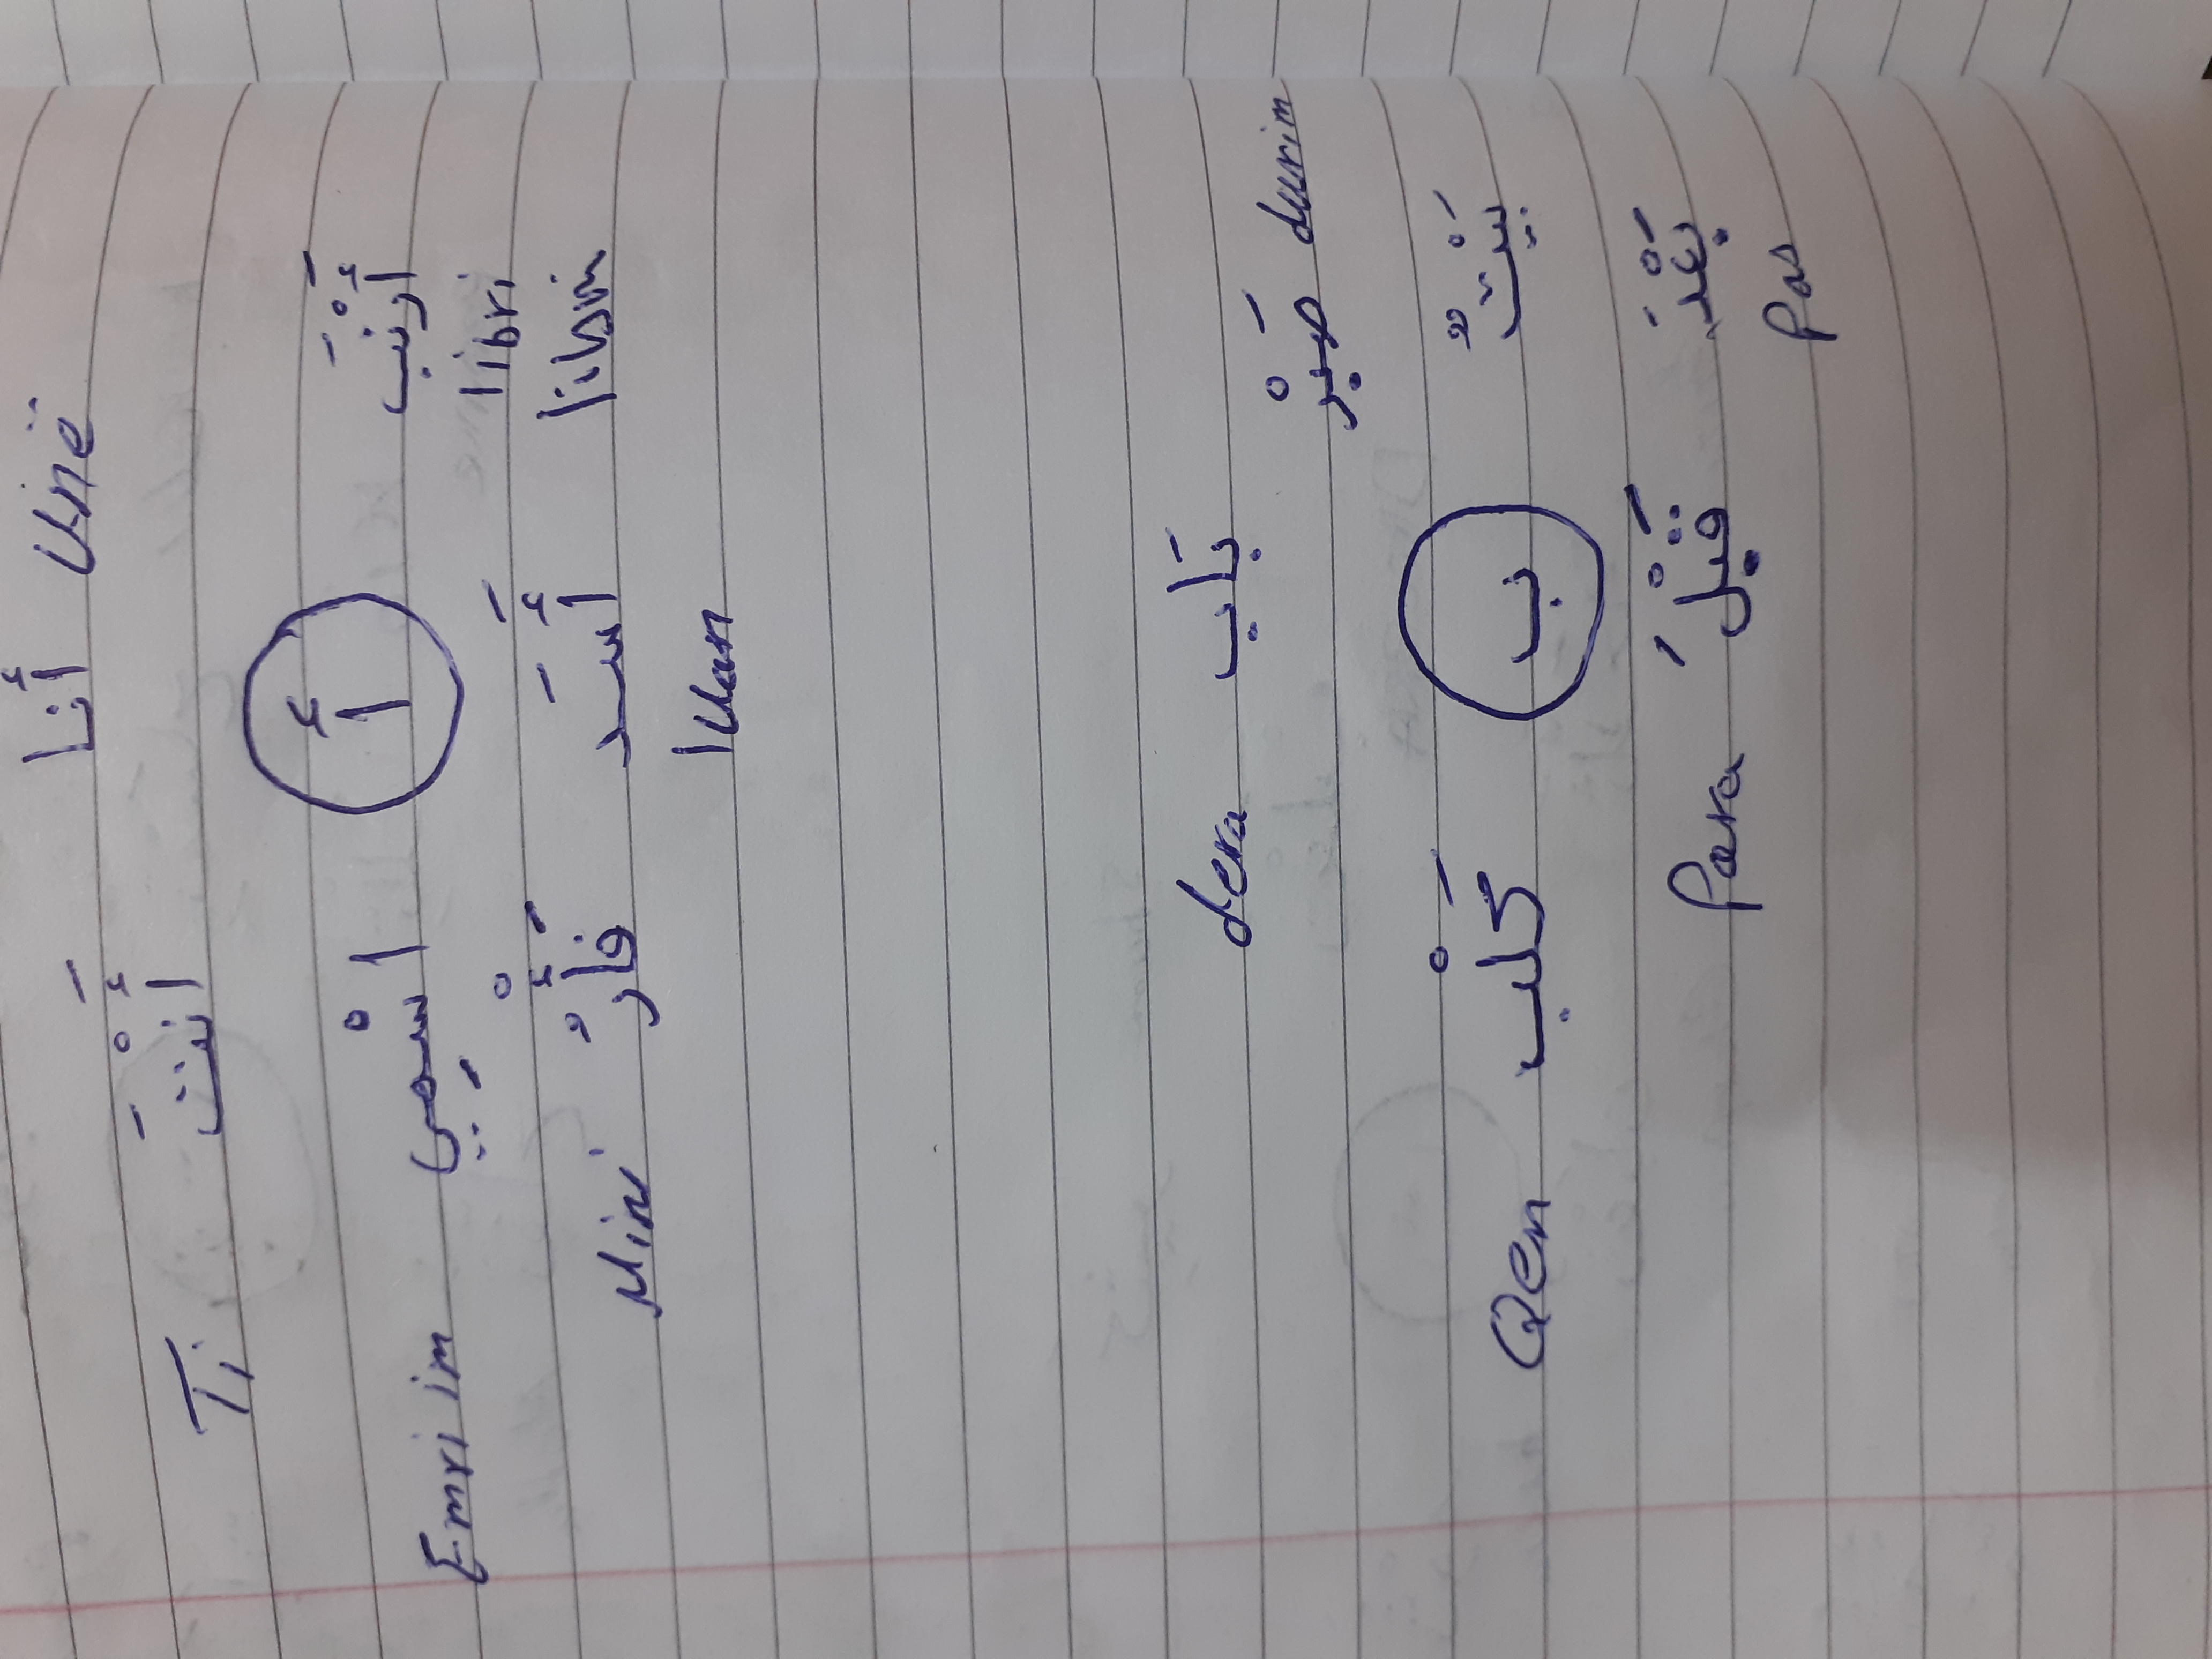 أنا Unë
Ti أَنْتَ
أ أَرْنَب
Emri im اسْمِي libri
أَسَد
Mini فَأْرٌ luan
dera بَاب
صَبْر durim
Qen كَلْب ب بَيْتٌ
Para قَبْلَ بَعْدَ
Pas